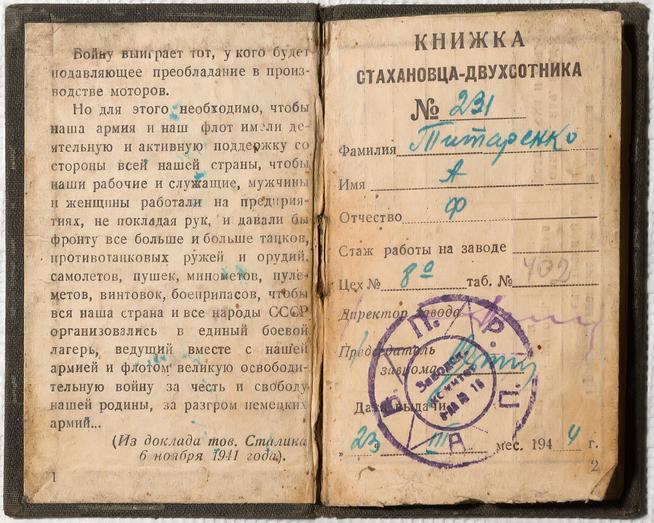 Войну выиграет тот, у кого будет
подавляющее преобладание в произ-
водстве моторов.
Но для этого необходимо, чтобы
наша армия и наш флот имели де-
ятельную и активную поддержку со
стороны всей нашей страны, чтобы
наши рабочие и служащие, мужчины
и женщины работали на предприя-
тиях, не покладая рук, и давали бы
фронту все больше и больше танков,
противотанковых ружей и орудий,
самолетов, пушек, минометов, пуле-
метов, винтовок, боеприпасов, чтобы
вся наша страна и все народы СССР
организовались в единый боевой
лагерь, ведущий вместе с нашей
армией и флотом великую освободи-
тельную войну за честь и свободу
нашей родины, за разгром немецких
армий...
(Из доклада тов. Сталина
6 ноября 1941 года.).
1
КНИЖКА
СТАХАНОВЦА-ДВУХСОТНИКА
№ 231
Фамилия Титаренко
Имя А
Отчество Ф
Стаж работы на заводе
Цех № 8а таб. № 402
Директор завода
Председатель
завкома
Дата выдачи
„23 III мес. 1944 г.
2
Заводск.